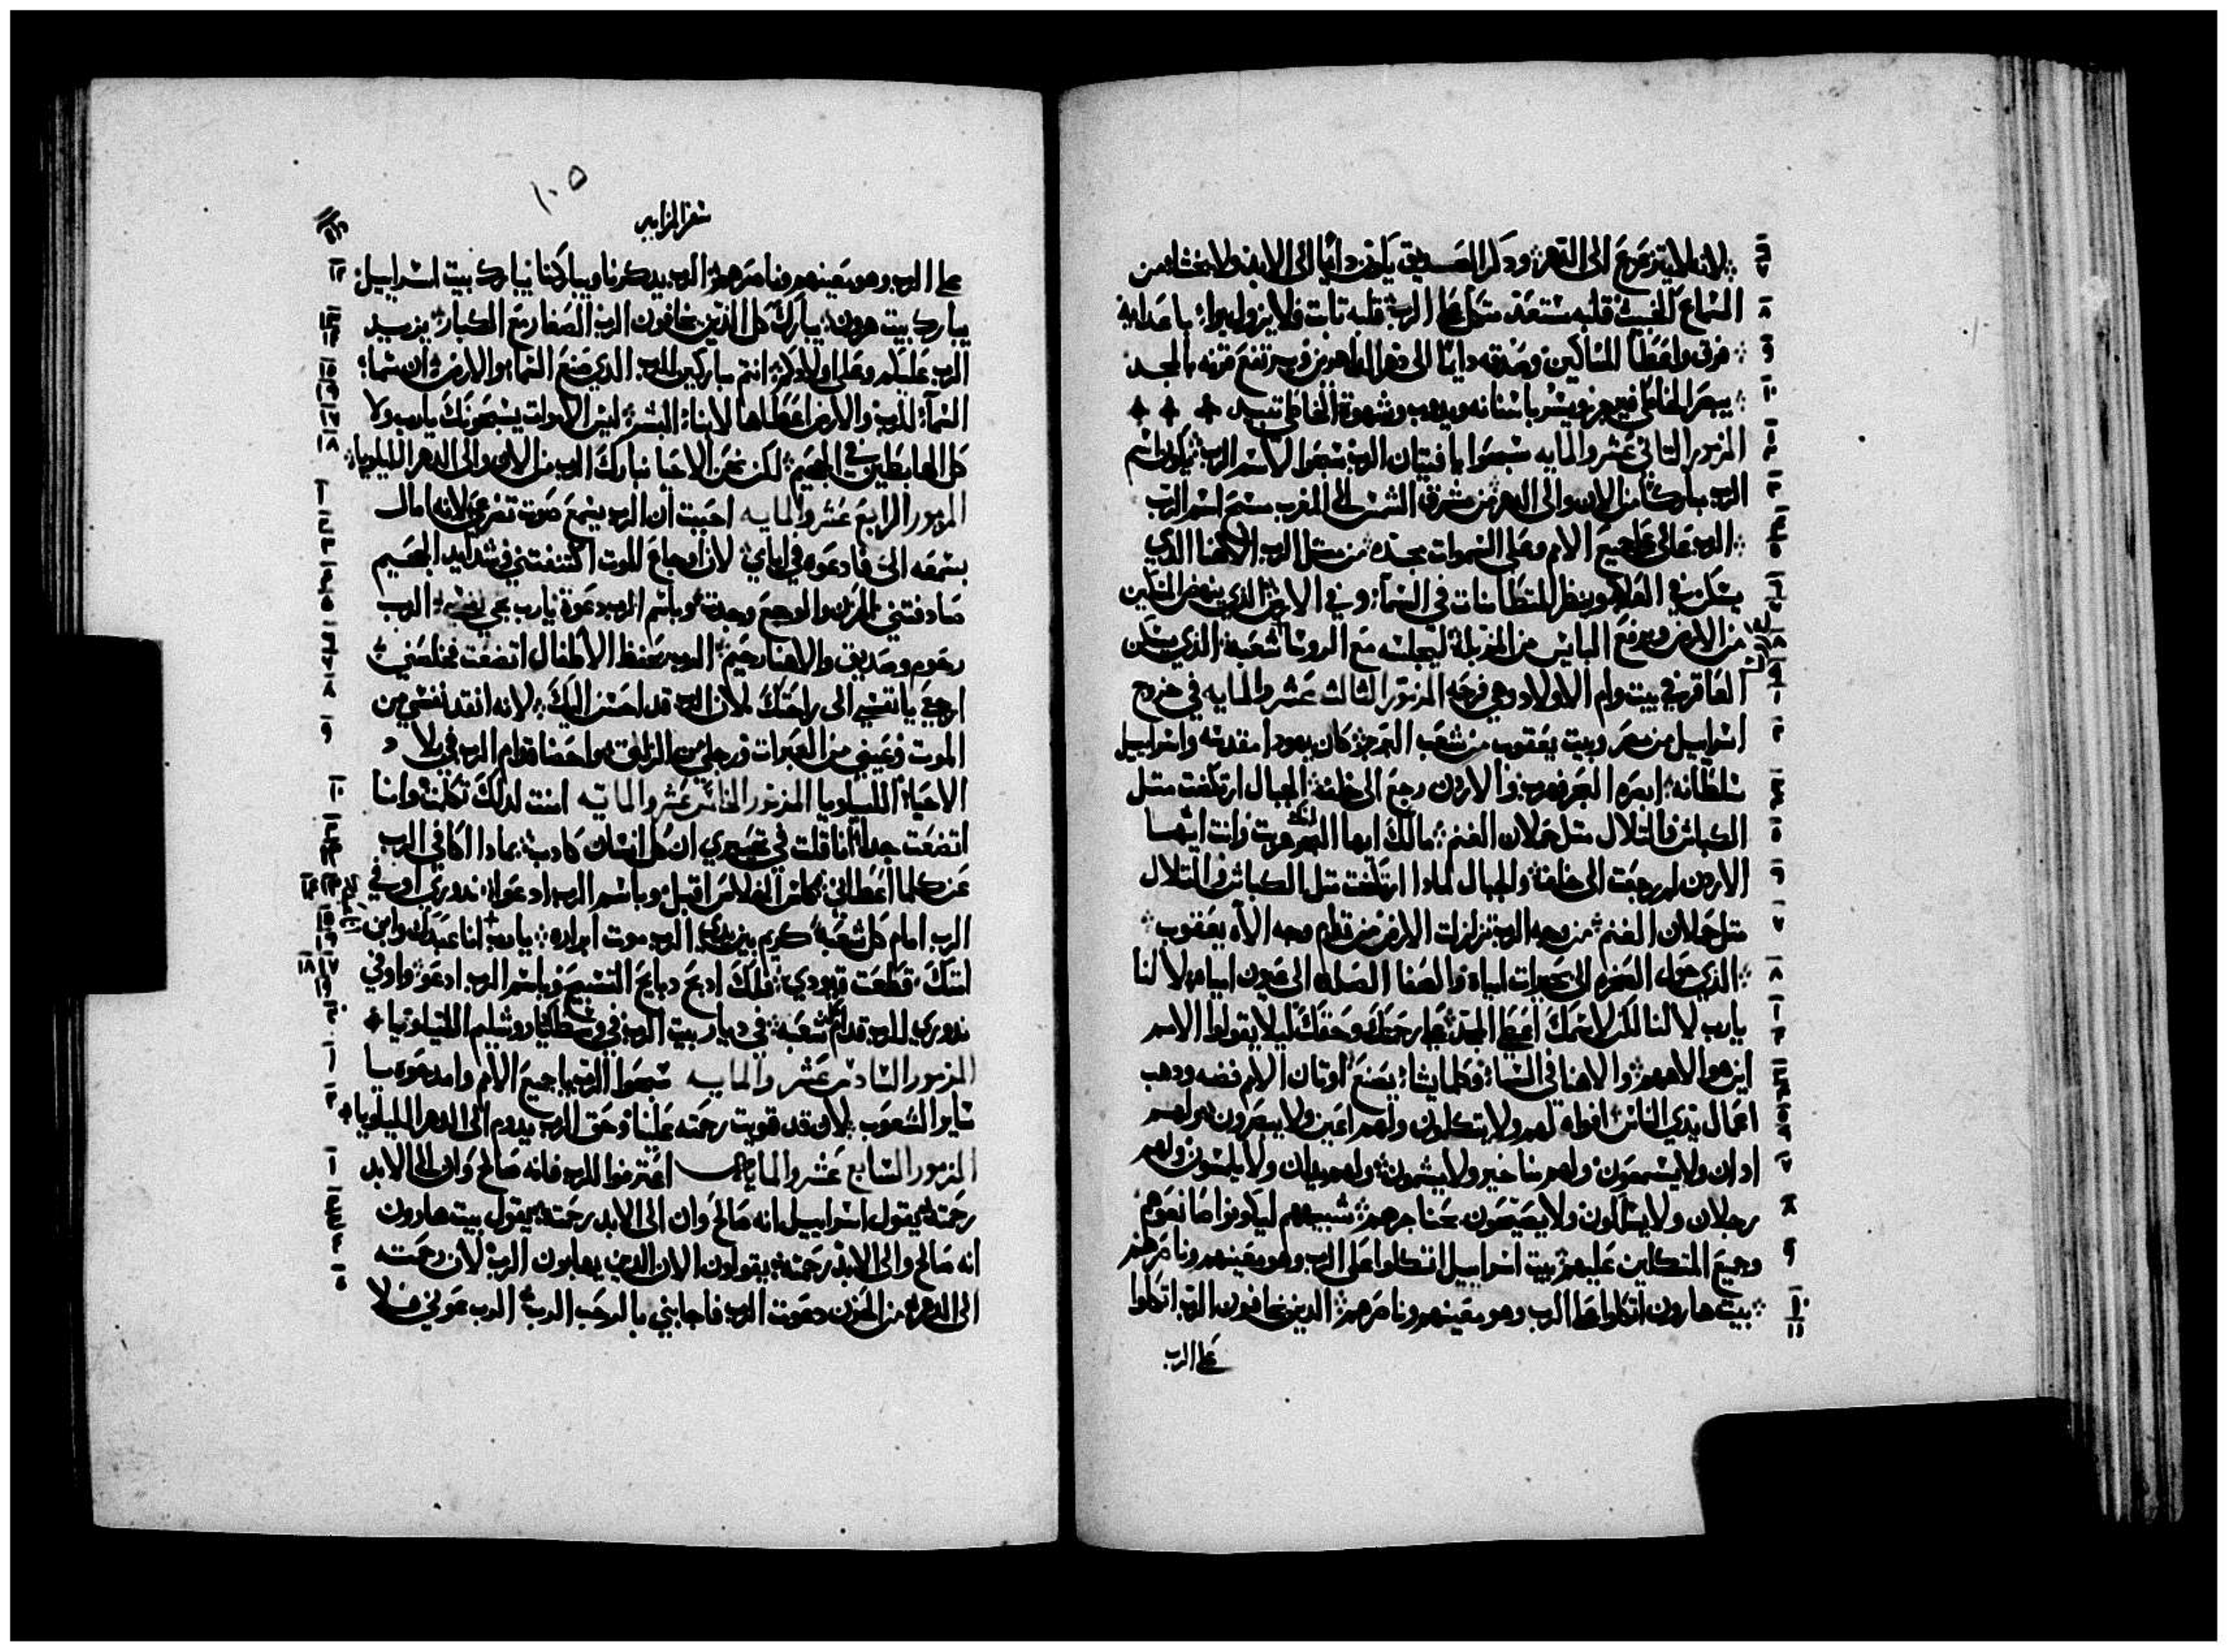 لانه لا يتزعزع الى الدهر ودكر الصديق يكون دايمًا الى الابد ولا يخشا من
السماع الخبيث قلبه مستعد متكل على الرب قلبه تابت فلا يزول
فرق واعطا المساكين وصدقه دايمًا الى دهر الداهرين قرنه بالمجد
يبصر الخاطى فيحرد ويسر باسنانه ويدوب وشهوة الخاطى تبيد
المزمور التانى عشر والمايه سبحوا يا فتيان الرب سبحوا لاسم الرب يكون اسم
الرب مباركًا من الان والى الدهر من مشرق الشمس الى المغرب اسم الرب
الرب عالى على جميع الامم وعلى السموات مجده من متل الرب الاهنا الدي
يسكن في العلا وينظر المتطامنات في السماء وفي الارض الدي ينهض المسكين
من الارض ويرفع البايس من المزبلة ليجلسه مع الروسا شعبه الدي يسكن
العاقر في بيت وام الاولاد وهي فرحه المزمور التالت عشر والمايه في خروج
اسراييل من مصر وبيت يعقوب من شعب كان يهودا مقدسه واسراييل
سلطانه ابصره البحر فهرب والاردن رجع الى خلفه الجبال ارتكضت متل
الكباش والتلال متل حملان الغنم مالك ايها البحر هربت وانت ايها
الاردن لم رجعت الى خلف والجبال لمادا ارتكضت متل الكباش والتلال
متل حملان الغنم من وجه الرب تزلزلت الارض من قدام وجه الاه يعقوب
الدي حول الصخره الى بحيرات مياه والصفا الصلده الى عيون امياه لا لنا
يارب لا لنا لكن لاسمك اعطى المجد على رحمتك وحقك ليلا يقولوا الامم
اين هو الاههم والاهنا في السماء وكلما يشاء يصنع اوتان الامم فضه ودهب
اعمال يدي الناس افواه لهم ولا يتكلمون ولهم اعين ولا يبصرون ولهم
ادان ولا يسمعون ولهم مناخير ولا يشمون ولهم يدان ولا يلمسون ولهم
رجلان ولا يسلكون ولا يصيحون بحناجرهم شبيههم ليكونوا صانعوهم
وجميع المتكلين عليهم بيت اسراييل اتكلوا على الرب وهو معينهم وناصرهم
بيت هارون اتكلوا على الرب وهو معينهم وناصرهم الدين يخافون الرب اتكلوا
على الرب
١٠٥
سفر المزامير
على الرب وهو معينهم وناصرهم الرب يدكرنا ويباركنا يبارك بيت اسراييل
يبارك بيت هرون يبارك كل الدين يخافون الرب الصغار مع الكبار يزيد
الرب عليكم وعلى اولادكم انتم مباركين للرب الدي صنع السماء والارض
السماء للرب والارض اعطاها لابناء البشر ليس الاموات يسبحونك يارب ولا
كل الهابطين في الجحيم لكن نحن الاحيا نبارك الرب من الان والى الدهر الليلويا
المزمور الرابع عشر والمايه احببت ان الرب يسمع صوت تضرعى لانه امال
بسمعه الى فادعوه في ايامي لان اوجاع الموت اكتنفتني وشدايد الجحيم
صادفتني الحزن والوجع وجدت وباسم الرب دعوة يارب نجي نفسي الرب
رحوم وصديق والاهنا رحيم الرب يحفظ الاطفال اتضعت فخلصني
ارجعي يا نفسي الى راحتك لان الرب قد احسن اليك لانه انقد نفسي من
الموت وعيني من العبرات ورجلي من الزلق قدام الرب في بلاد
الاحياء الليلويا المزمور الخامس عشر والمايه امنت لدلك تكلمت وانا
اتضعت جدا انا قلت في تحيري ان كل انسان كادب بمادا اكافى الرب
عن كلما اعطاني كاس الخلاص اقبل وباسم الرب ادعوا ندوري اوفي
الرب امام كل شعبه كريم بين يدي الرب موت ابراره يارب انا عبدك وابن
امتك قطعت قيودي فلك ادبح دبايح التسبيح وباسم الرب ادعوا واوفي
ندوري للرب قدام شعبه في ديار بيت الرب في وسطك يا روشليم الليلويا
المزمور السادس عشر والمايه سبحوا الرب يا جميع الامم وامدحوه يا
ساير الشعوب لان قد قويت رحمته علينا وحق الرب يدوم الى الدهر الليلويا
المزمور السابع عشر والمايه اعترفوا للرب فانه صالح وان الى الابد
رحمته يقول اسراييل انه صالح وان الى الابد رحمته يقول بيت هارون
انه صالح والى الابد رحمته يقولون الان الدين يهابون الرب لان رحمته
الى الدهر من الحزن دعوت الرب فاجابني بالرحب الرب الرب عوني فلا